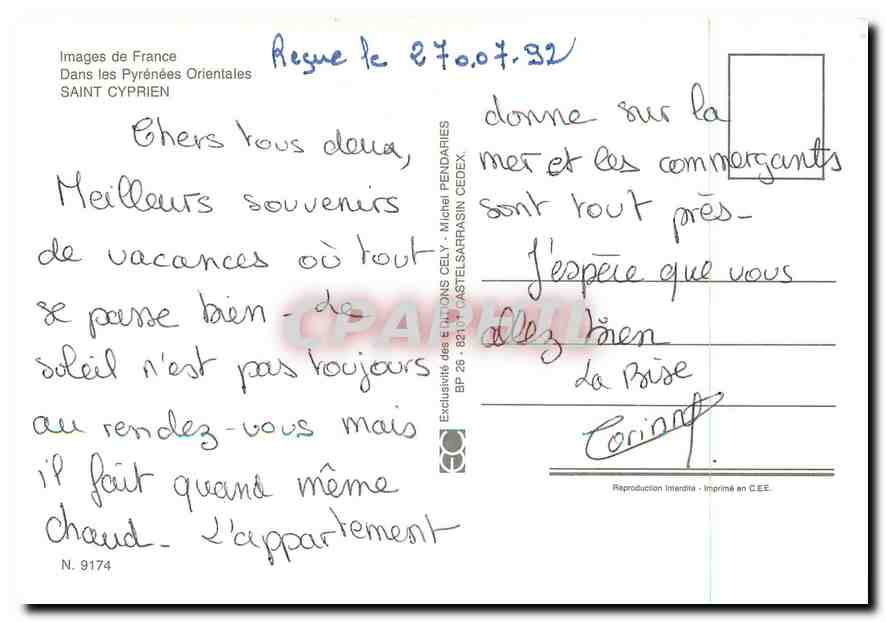 Images de France
Dans les Pyrénées Orientales
SAINT CYPRIEN
Reçue le 270.07.92
Chers tous deux,
Meilleurs souvenirs
de vacances où tout
se passe bien - Le
soleil n'est pas toujours
au rendez-vous mais
il fait quand même
chaud - L'appartement
N. 9174
Exclusivité des EDITIONS CELY - Michel PENDARIES
BP 26 - 82101 CASTELSARRASIN CEDEX.
donne sur la
mer et les commerçants
sont tout près -
J'espère que vous
allez bien
La Bise
Corinne
Reproduction Interdite - Imprimé en C.E.E.
CPAPHIL